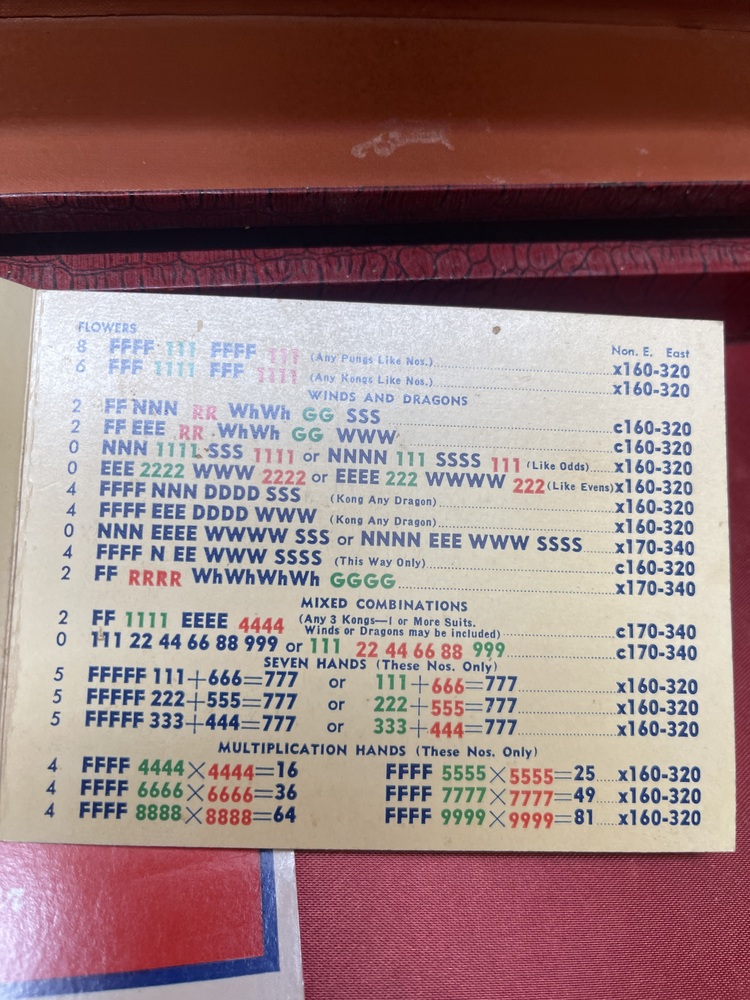 FLOWERS Non. E. East
8 FFFF 111 FFFF 111 (Any Pungs Like Nos.) x160-320
6 FFF 1111 FFF 1111 (Any Kongs Like Nos.) x160-320
WINDS AND DRAGONS
2 FF NNN RR WhWh GG SSS c160-320
2 FF EEE RR WhWh GG WWW c160-320
0 NNN 1111 SSS 1111 or NNNN 111 SSSS 111 (Like Odds) x160-320
0 EEE 2222 WWW 2222 or EEEE 222 WWWW 222 (Like Evens) x160-320
4 FFFF NNN DDDD SSS (Kong Any Dragon) x160-320
4 FFFF EEE DDDD WWW (Kong Any Dragon) x160-320
0 NNN EEEE WWWW SSS or NNNN EEE WWW SSSS x170-340
4 FFFF N EE WWW SSSS (This Way Only) c160-320
2 FF RRRR WhWhWhWh GGGG x170-340
MIXED COMBINATIONS
2 FF 1111 EEEE 4444 (Any 3 Kongs—1 or More Suits. Winds or Dragons may be included) c170-340
0 111 22 44 66 88 999 or 111 22 44 66 88 999 c170-340
SEVEN HANDS (These Nos. Only)
5 FFFFF 111+666=777 or 111+666=777 x160-320
5 FFFFF 222+555=777 or 222+555=777 x160-320
5 FFFFF 333+444=777 or 333+444=777 x160-320
MULTIPLICATION HANDS (These Nos. Only)
4 FFFF 4444×4444=16 FFFF 5555×5555=25 x160-320
4 FFFF 6666×6666=36 FFFF 7777×7777=49 x160-320
4 FFFF 8888×8888=64 FFFF 9999×9999=81 x160-320